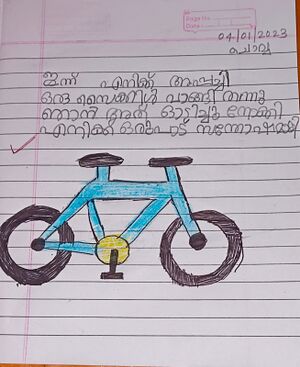 Page No.
Date
04/01/2023
ചൊവ്വ
ഇന്ന് എനിക്ക് അപ്പച്ചി
ഒരു സൈക്കിൾ വാങ്ങി തന്നു
ഞാൻ അത് ഓടിച്ചു നോക്കി
എനിക്ക് ഒരുപാട് സന്തോഷമായി